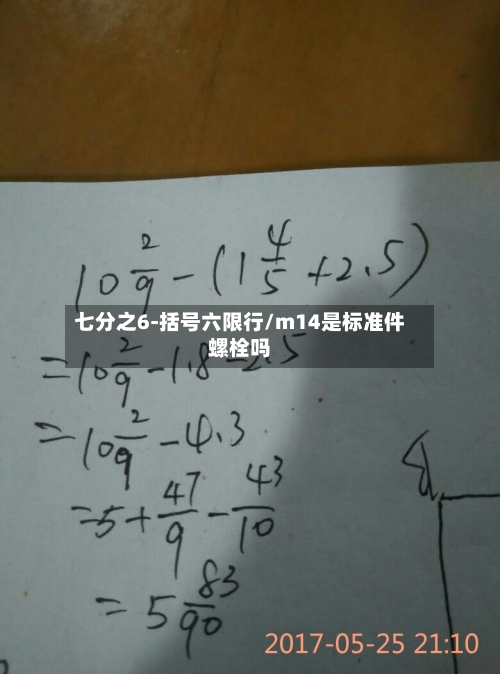 10 2/9 - (1 4/5 + 2.5)
七分之6-括号六限行/m14是标准件
螺栓吗
= 10 2/9 - 1.8 - 2.5
= 10 2/9 - 4.3
= 5 + 47/9 - 43/10
= 5 83/90
2017-05-25 21:10